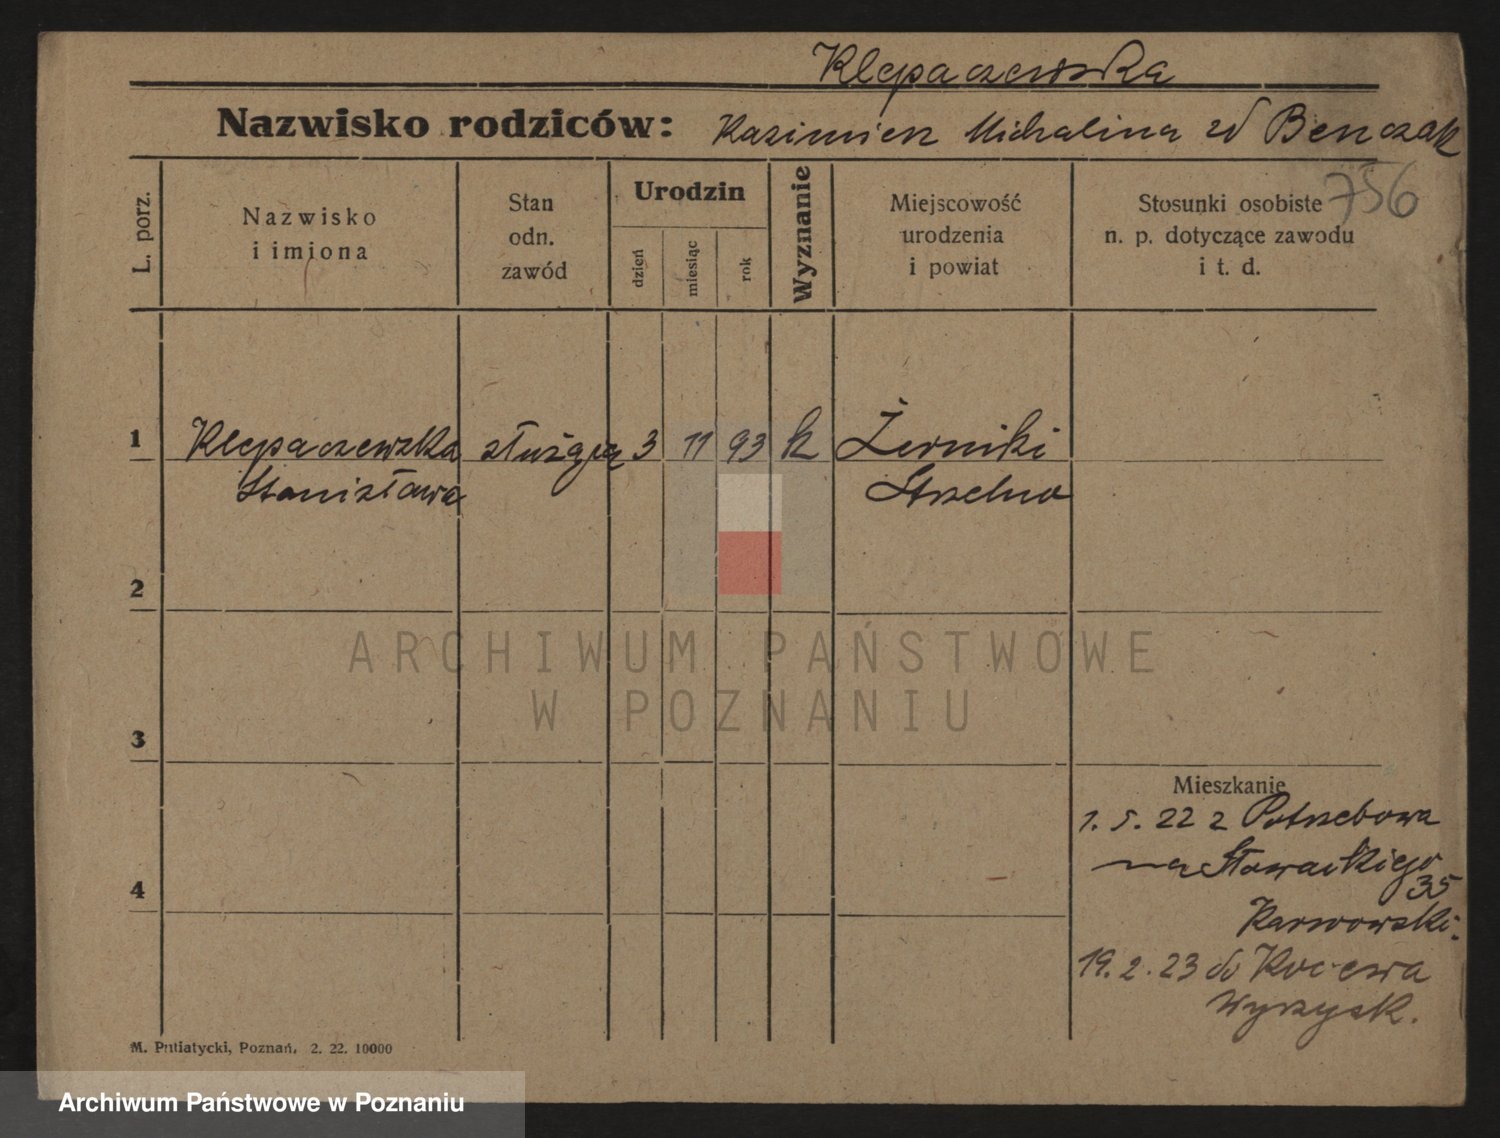 Klepaczewska
Nazwisko rodziców: Kazimierz Michalina zd Benczak
756
L. porz.
Nazwisko
i imiona
Stan
odn.
zawód
Urodzin
dzień
miesiąc
rok
Wyznanie
Miejscowość
urodzenia
i powiat
Stosunki osobiste
n. p. dotyczące zawodu
i t. d.
1 Klepaczewska służąca 3 11 93 k Żerniki
Stanisława Strzelno
2
3
4
Mieszkanie
1. 5. 22 z Potrzebowa
na Słowackiego
35
Karwowski.
19. 2. 23 do
Wyrzysk.
M. Putiatycki, Poznań, 2. 22. 10000
ARCHIWUM PAŃSTWOWE
W POZNANIU
Archiwum Państwowe w Poznaniu